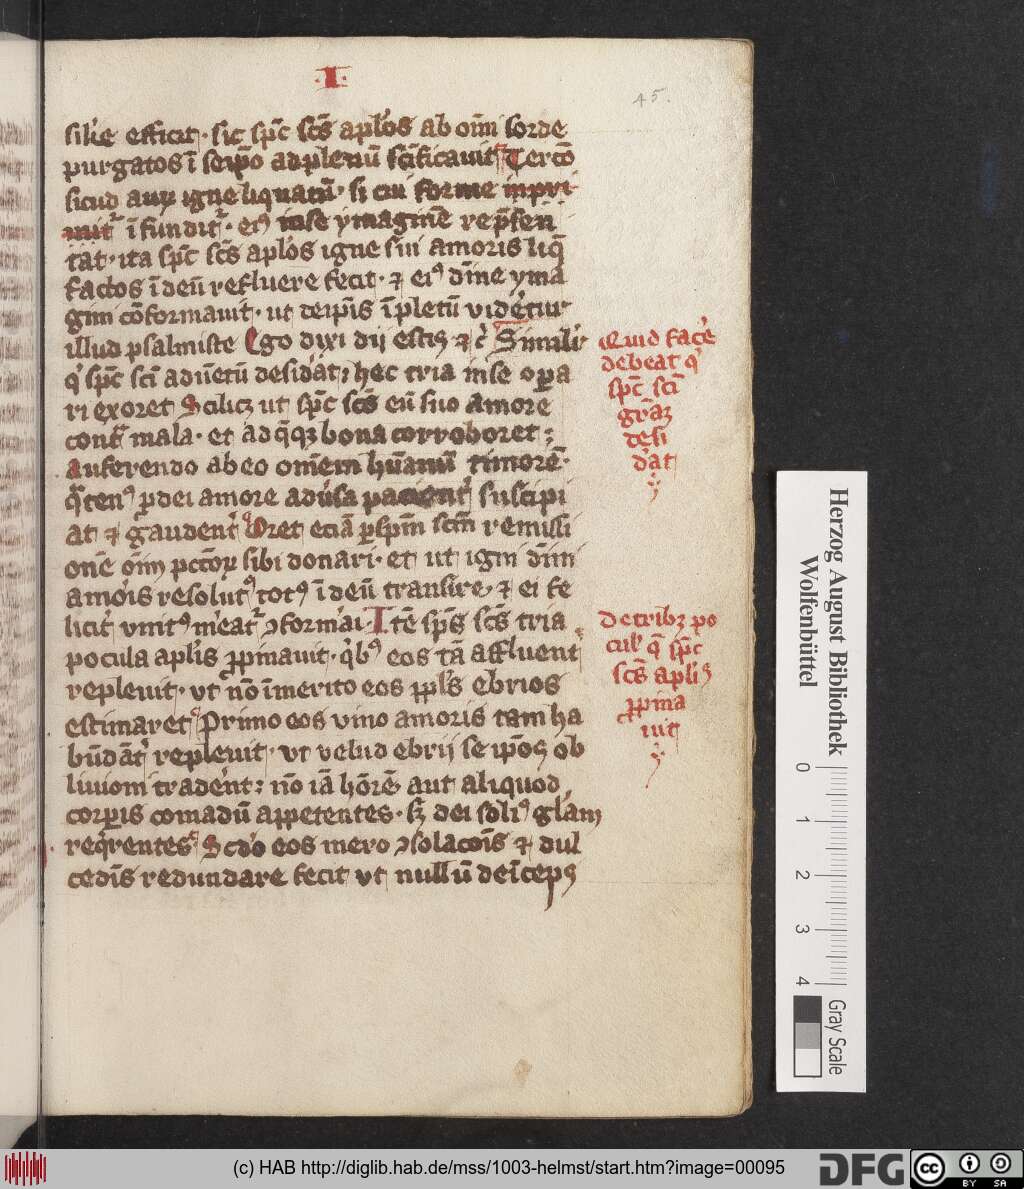 ·I·
45.
silr̄e efficit · sic sp̄c sc̄s apl̄os ab om̄i sorde
purgatos ī seip̄o ad plenū sc̄ificauit Tercō
sicud auꝝ igne liquatū · si cui forme inpri
mit᷑ ī fundit᷑ · eiꝰ inse ymaginē rep̄sen
tāt · ita sp̄c sc̄s apl̄os igne sui amoris liq̄
factos ī deū refluere fecit · ⁊ eiꝰ diu̅ne yma
gini cōformauit · ut deip̄is īpletū videretur
illud psalmiste Ego dixi dij estis ⁊ c̄ Similir
q̇ sp̄c sc̄i aduētū desidāt ; hec tria inse oꝑa
ri exoret Scilicꝫ ut sp̄c sc̄s eū suo amore
cont᷑ mala · et ad q̄qꝫ bona corroboret ;
auferendo ab eo om̄em hūanū timorē ·
q̄tenꝰ ꝑ dei amore adūsa pacient᷑ suscipi
at ⁊ gaudent᷑ Oret eciā ꝑ sp̄m sc̄m remissi
onē oīm pctōꝝ sibi donari · et ut igni diuini
amoris resolutꝰ totꝰ ī deū transire ⁊ ei fe
licit᷑ vnitꝰ meat᷑ ꝯformāi Itē sp̄s sc̄s tria
pocula apl̄is ꝓpinauit · q̇bꝰ eos tā affluent᷑
repleuit · vt nō īmerito eos ppl̄s ebrios
estimaret Primo eos vino amoris tam ha
būdāt᷑ repleuit · vt velud ebrij se ip̄os ob
liuioni tradent ; nō iā hōrē aut aliquod
corꝑis comadū appetentes · sꝫ dei soliꝰ glām
req̄rentes Scdo eos mero ꝯsolacōis ⁊ dul
cedīs redundare fecit vt nullū deīceps
Quid face
debeat q̇
sp̄c sc̄i
grāꝫ
desi
dāt
de tribꝫ po
cul᷑ q̄ sp̄c
sc̄s aplis
ꝓpina
uit
Herzog August Bibliothek
Wolfenbüttel
0
1
2
3
4
Gray Scale
(c) HAB http://diglib.hab.de/mss/1003-helmst/start.htm?image=00095
DFG
cc
BY SA